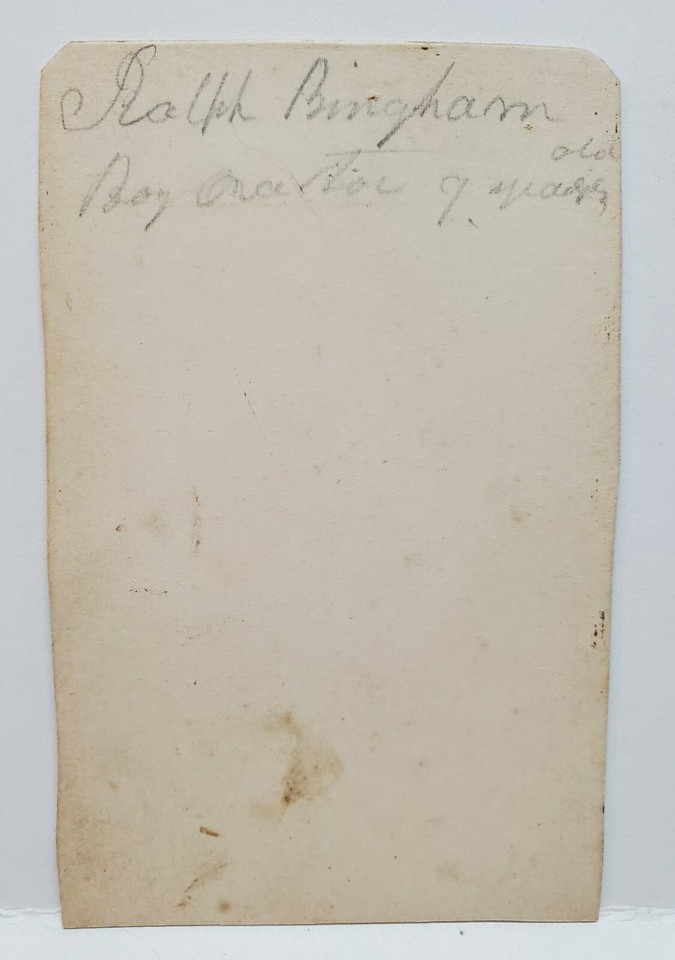 Ralph Bingham
Boy Orator 9 years old